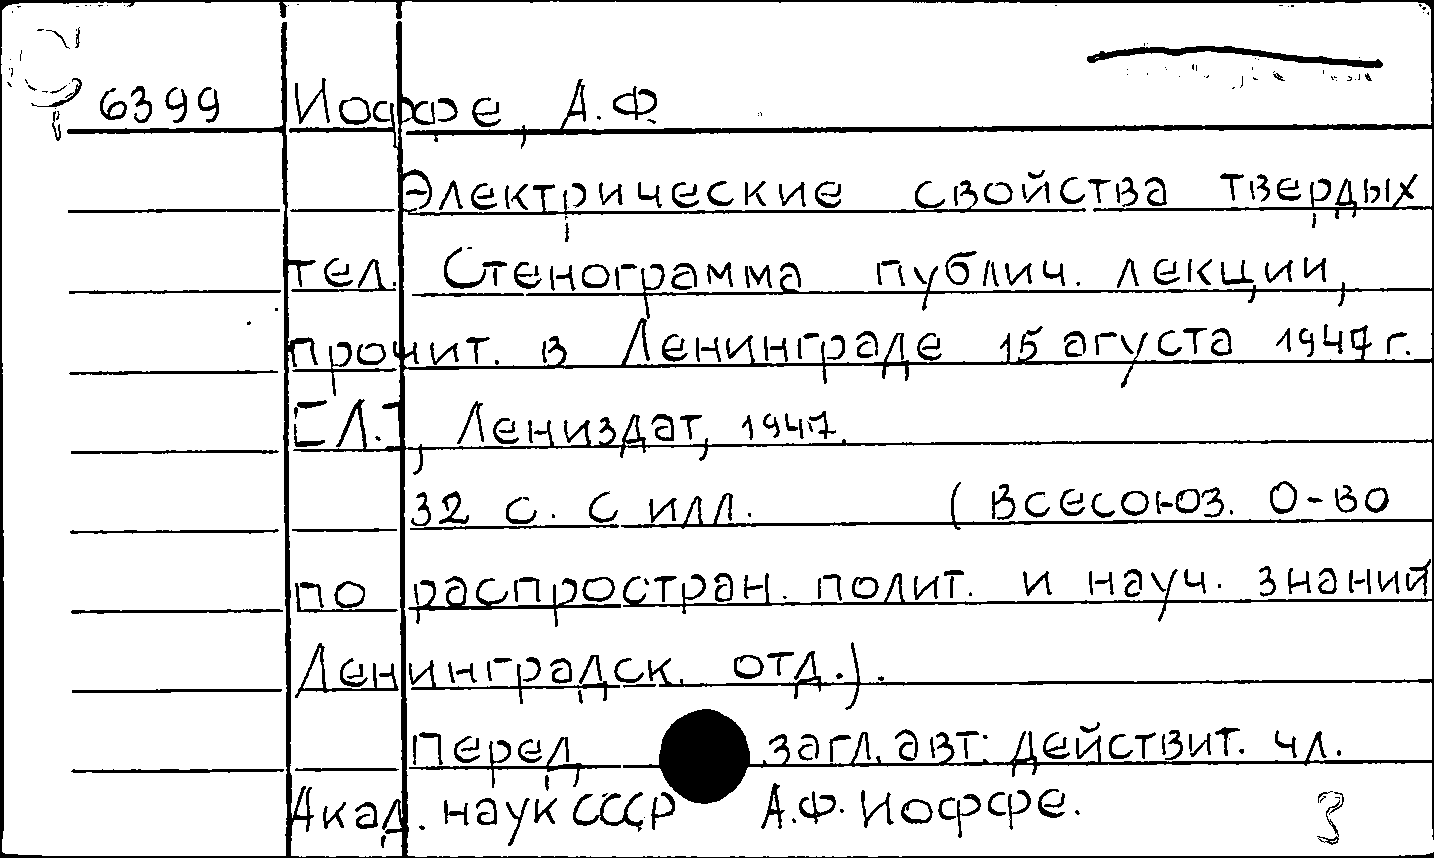 6399 Иоффе, А.Ф.
Электрические свойства твердых
тел. Стенограмма публич. лекции,
прочит. в Ленинграде 15 агуста 1947 г.
[Л.], Лениздат, 1947.
32 с. с илл. (Всесоюз. о-во
по распростран. полит. и науч. знаний
Ленинградск. отд.).
Перед загл. авт: действит. чл.
Акад. наук СССР А.Ф. Иоффе.
3